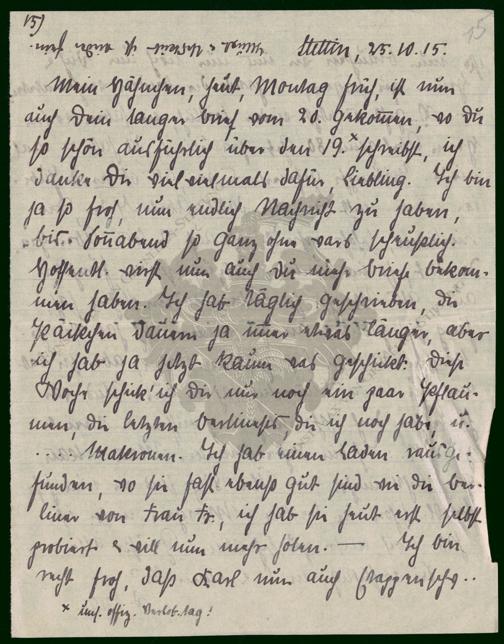 15)
15
Stettin, 25.10.15.
Mein Hähnchen, heut, Montag früh, ist nun
auch Dein langer Brief vom 20. gekommen, wo du
so schön ausführlich über den 19.ˣ schreibst, ich
danke Dir vielvielmals dafür, Liebling. Ich bin
ja so froh, nun endlich Nachricht zu haben,
bis Sonnabend so ganz ohne war's scheußlich.
Hoffentl. wirst nun auch Du mehr Briefe bekom-
men haben. Ich hab täglich geschrieben, die
Päckchen dauern ja immer etwas länger, aber
ich hab ja jetzt kaum was geschickt. Diese
Woche schick' ich dir nur noch ein paar Pflau-
men, die letzten, die ich noch habe, u.
Makronen. Ich hab einen Laden rausge-
funden, wo sie fast ebenso gut sind wie die Ber-
liner von Frau Fr., ich hab sie heut erst selbst
probiert & will nun mehr holen. — Ich bin
recht froh, daß Karl nun auch
x uns. offiz. Verlob.tag!